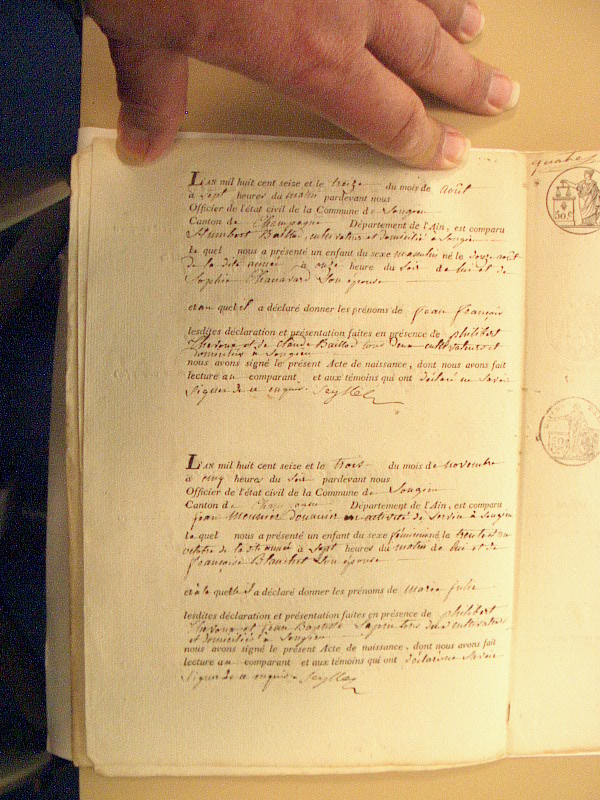 quatre
50.C
L'AN mil huit cent seize et le treize du mois de août
à sept heures du matin pardevant nous
Officier de l'état civil de la Commune de Songieu
Canton de Champagne Département de l'Ain, est comparu
humbert Baillod, cultivateur et domicilié à Songieu
lequel nous a présenté un enfant du sexe masculin né le douze août
de la dite année à onze heure du soir de lui et de
Sophie Chanavard son épouse
et auquel il a déclaré donner les prénoms de jean françois
lesdites déclaration et présentation faites en présence de philibert
et de claude Baillod tous deux cultivateurs et
domiciliés à Songieu
nous avons signé le présent Acte de naissance, dont nous avons fait
lecture au comparant et aux témoins qui ont déclaré ne savoir
signer de ce enquis. Seyssel
L'AN mil huit cent seize et le trois du mois de novembre
à cinq heures du soir pardevant nous
Officier de l'état civil de la Commune de Songieu
Canton de Champagne Département de l'Ain, est comparu
jean Meunier douanier en activité de service à Songieu
lequel nous a présenté un enfant du sexe féminin né la trente et un
octobre de la dte année à sept heures du matin de lui et de
françoise Blanchet son épouse
et à la quelle il a déclaré donner les prénoms de marie julie
lesdites déclaration et présentation faites en présence de philibert
et jean Baptiste tous deux cultivateurs
et domiciliés à Songieu
nous avons signé le présent Acte de naissance, dont nous avons fait
lecture au comparant et aux témoins qui ont déclaré ne savoir
signer de ce enquis. Seyssel